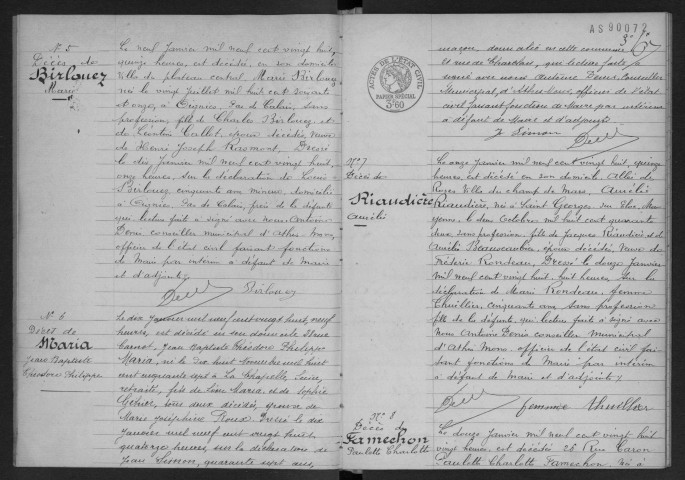 N. 5
Décès de
Birlouez
Marie
Le neuf Janvier mil neuf cent vingt huit,
quinze heures, est décédée, en son domicile
Villa du plateau central Marie Birlouez
née le vingt juillet mil huit cent soixante
et onze, à Oignies, Pas de Calais, sans
profession, fille de Charles Birlouez et
de Léontine Callet, époux décédés, veuve
de Henri Joseph Rasmont, Dressé
le dix Janvier mil neuf cent vingt huit,
onze heures, sur la déclaration de Louis
Birlouez, cinquante ans mineur domicilié
à Oignies, Pas de Calais, père de la défunte
qui lecture faite a signé avec nous Antoine
Denis conseiller municipal d'Athis-Mons,
officier de l'état civil faisant fonctions
de Maire par intérim à défaut de Maire
et d'adjoints
Birlouez
N. 6
Décès de
Maria
Jean Baptiste
Théodore Philippe
Le dix Janvier mil neuf cent vingt huit, neuf
heures, est décédé en son domicile
Carnot, Jean Baptiste Théodore Philippe
Maria, né le dix huit mil huit
cent cinquante sept à La Chapelle,
retraité, fils de Maria et de Sophie
tous deux décédés, époux de
Marie Joséphine Roux Dressé le dix
Janvier mil neuf cent vingt huit,
quatorze heures, sur la déclaration de
Jean Simon, quarante sept ans,
AS 90072
ACTES DE L'ÉTAT CIVIL
PAPIER SPÉCIAL
3f60
maçon, domicilié en cette commune
qui lecture faite a
signé avec nous Antoine Denis, Conseiller
Municipal d'Athis-Mons, officier de l'état
civil faisant fonction de Maire par intérim
à défaut de Maire et d'adjoints
J Simon
N° 7
Décès de
Riaudière
Amélie
Le onze Janvier mil neuf cent vingt huit, quinze
heures est décédée en son domicile Allée des
Roses Villa du champ de Mars, Amélie
Riaudière, née à Saint Georges sur Mayenne
le deux Octobre mil huit cent quarante
deux, sans profession, fille de Jacques Riaudière et de
Amélie époux décédés, veuve de
Frédéric Rondeau, Dressé le douze Janvier
mil neuf cent vingt huit, huit heures, sur la
déclaration de Marie Rondeau, femme
Thuillier, cinquante ans sans profession
fille de la défunte, qui lecture faite a signé avec
nous Antoine Denis conseiller municipal
d'Athis Mons officier de l'état civil faisant
fonctions de Maire par intérim
à défaut de Maire et d'adjoints
femme Thuillier
N° 8
Décès de
Famechon
Paulette Charlotte
Le douze Janvier mil neuf cent vingt huit
vingt heures, est décédée 26 Rue Caron
Paulette Charlotte Famechon, née à